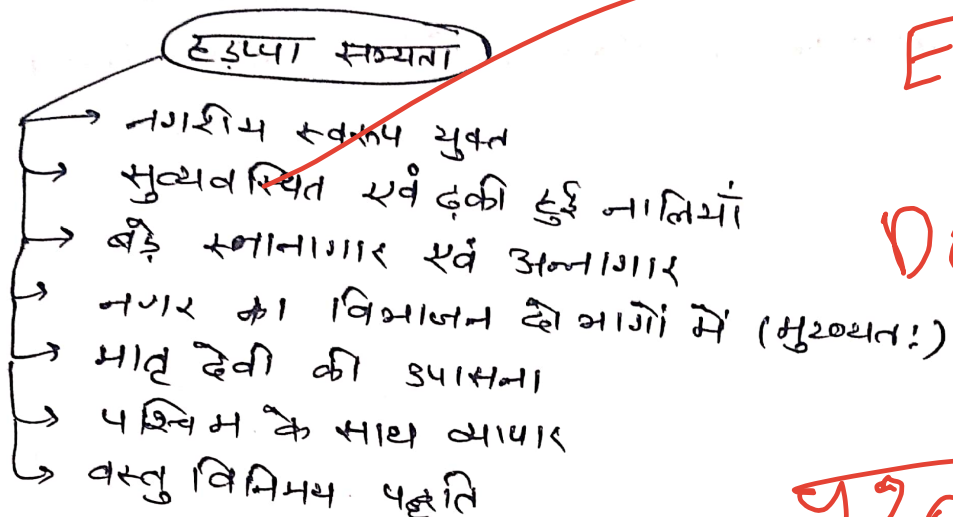 हड़प्पा सभ्यता
नगरीय स्वरूप युक्त
सुव्यवस्थित एवं ढ़की हुई नालियाँ
बड़े स्नानागार एवं अन्नागार
नगर का विभाजन दो भागों में (मुख्यतः)
मातृ देवी की उपासना
पश्चिम के साथ व्यापार
वस्तु विनिमय पद्धति
E